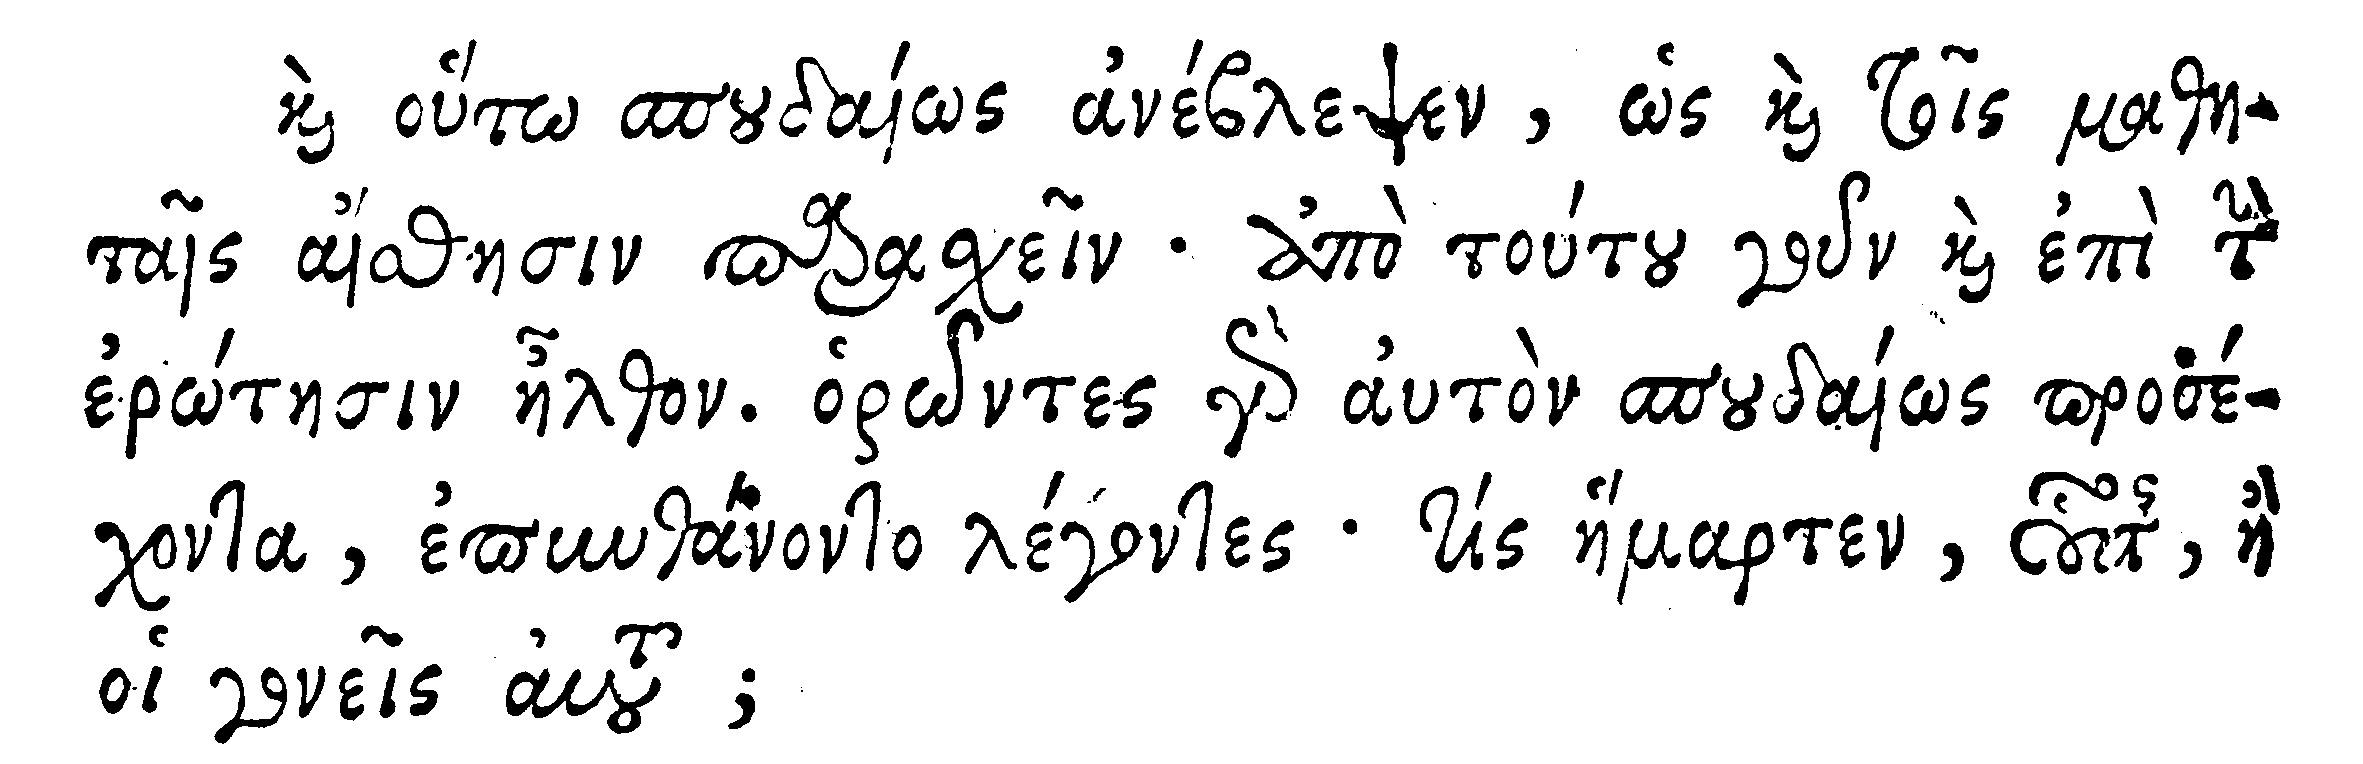 καὶ οὕτω σπουδαίως ἀνέβλεψεν, ὡς καὶ τοῖς μαθη-
ταῖς αἴσθησιν παραχεῖν. ἀπὸ τούτου γοῦν καὶ ἐπὶ τὴν
ἐρώτησιν ἦλθον. ὁρῶντες γὰρ αὐτὸν σπουδαίως προσέ-
χοντα, ἐπυνθάνοντο λέγοντες· τίς ἥμαρτεν, οὗτος, ἢ
οἱ γονεῖς αὐτοῦ;